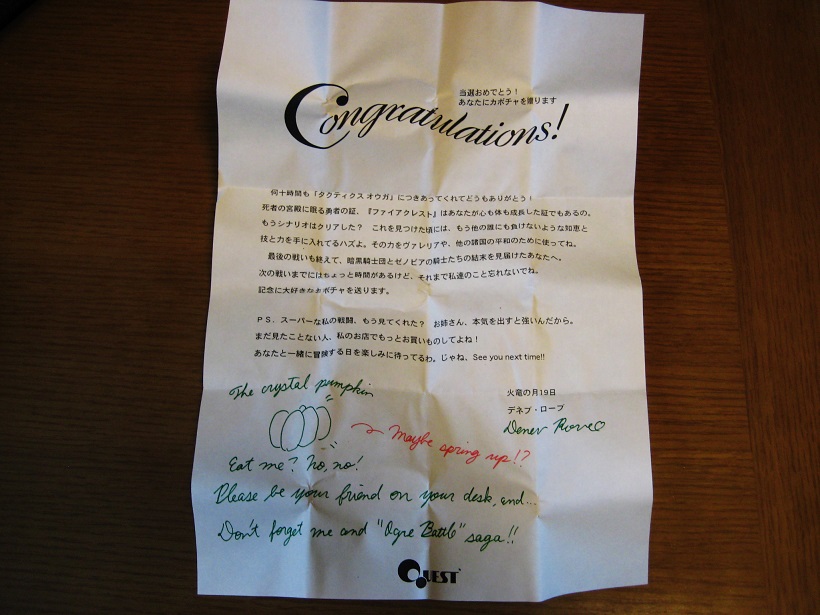 当選おめでとう！
あなたにカボチャを贈ります
Congratulations!
何十時間も「タクティクス オウガ」につきあってくれてどうもありがとう！
死者の宮殿に眠る勇者の証、『ファイアクレスト』はあなたが心も体も成長した証でもあるの。
もうシナリオはクリアした？ これを見つけた頃には、もう他の誰にも負けないような知恵と
技と力を手に入れてるハズよ。その力をヴァレリアや、他の諸国の平和のために使ってね。
最後の戦いも終えて、暗黒騎士団とゼノビアの騎士たちの結末を見届けたあなたへ。
次の戦いまでにはちょっと時間があるけど、それまで私達のこと忘れないでね。
記念に大好きなカボチャを送ります。
ＰＳ．スーパーな私の戦闘、もう見てくれた？ お姉さん、本気を出すと強いんだから。
まだ見たことない人、私のお店でもっとお買いものしてよね！
あなたと一緒に冒険する日を楽しみに待ってるわ。じゃね、See you next time!!
火竜の月19日
デネブ・ローブ
Denev Rove
The crystal pumpkin
Maybe spring up!?
Eat me? No, no!
Please be your friend on your desk, and...
Don't forget me and "Ogre Battle" saga!!
QUEST